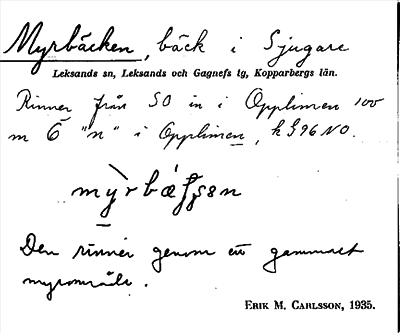 Myrbäcken, bäck i Sjugare
Leksands sn, Leksands och Gagnefs tg, Kopparbergs län.
Rinner från SO in i Opplimen 100
m Ö "n" i Opplimen, k 596 NO.
Den rinner genom ett gammalt
myrområde.
ERIK M. CARLSSON, 1935.